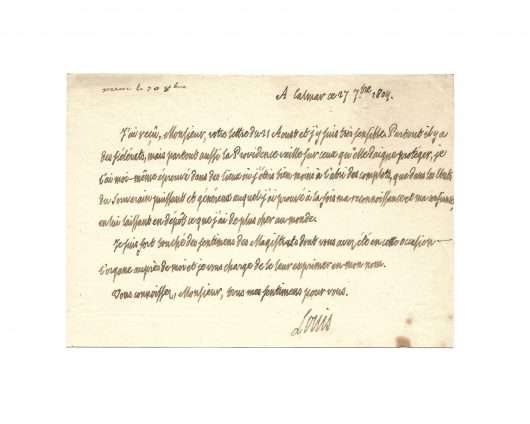 recu le 20 8bre
A Calmar ce 27 7bre 1804.
J'ai reçu, Monsieur, votre lettre du 21 Aoust et j'y suis très sensible. Partout il y a
des scélérats, mais partout aussi la Providence veille sur ceux qu'Elle daigne protéger, je
l'ai moi-même éprouvé dans des lieux où j'étois bien moins à l'abri des complots, que dans les Etats
du Souverain puissant et généreux auquel j'ai prouvé à la fois ma reconnoissance et ma confiance,
en lui laissant en dépôt ce que j'ai de plus cher au monde.
Je suis fort touché des sentimens des Magistrats dont vous avez été en cette occasion
l'organe auprès de moi et je vous charge de le leur exprimer en mon nom.
Vous connoissez, Monsieur, tous mes sentimens pour vous.
Louis